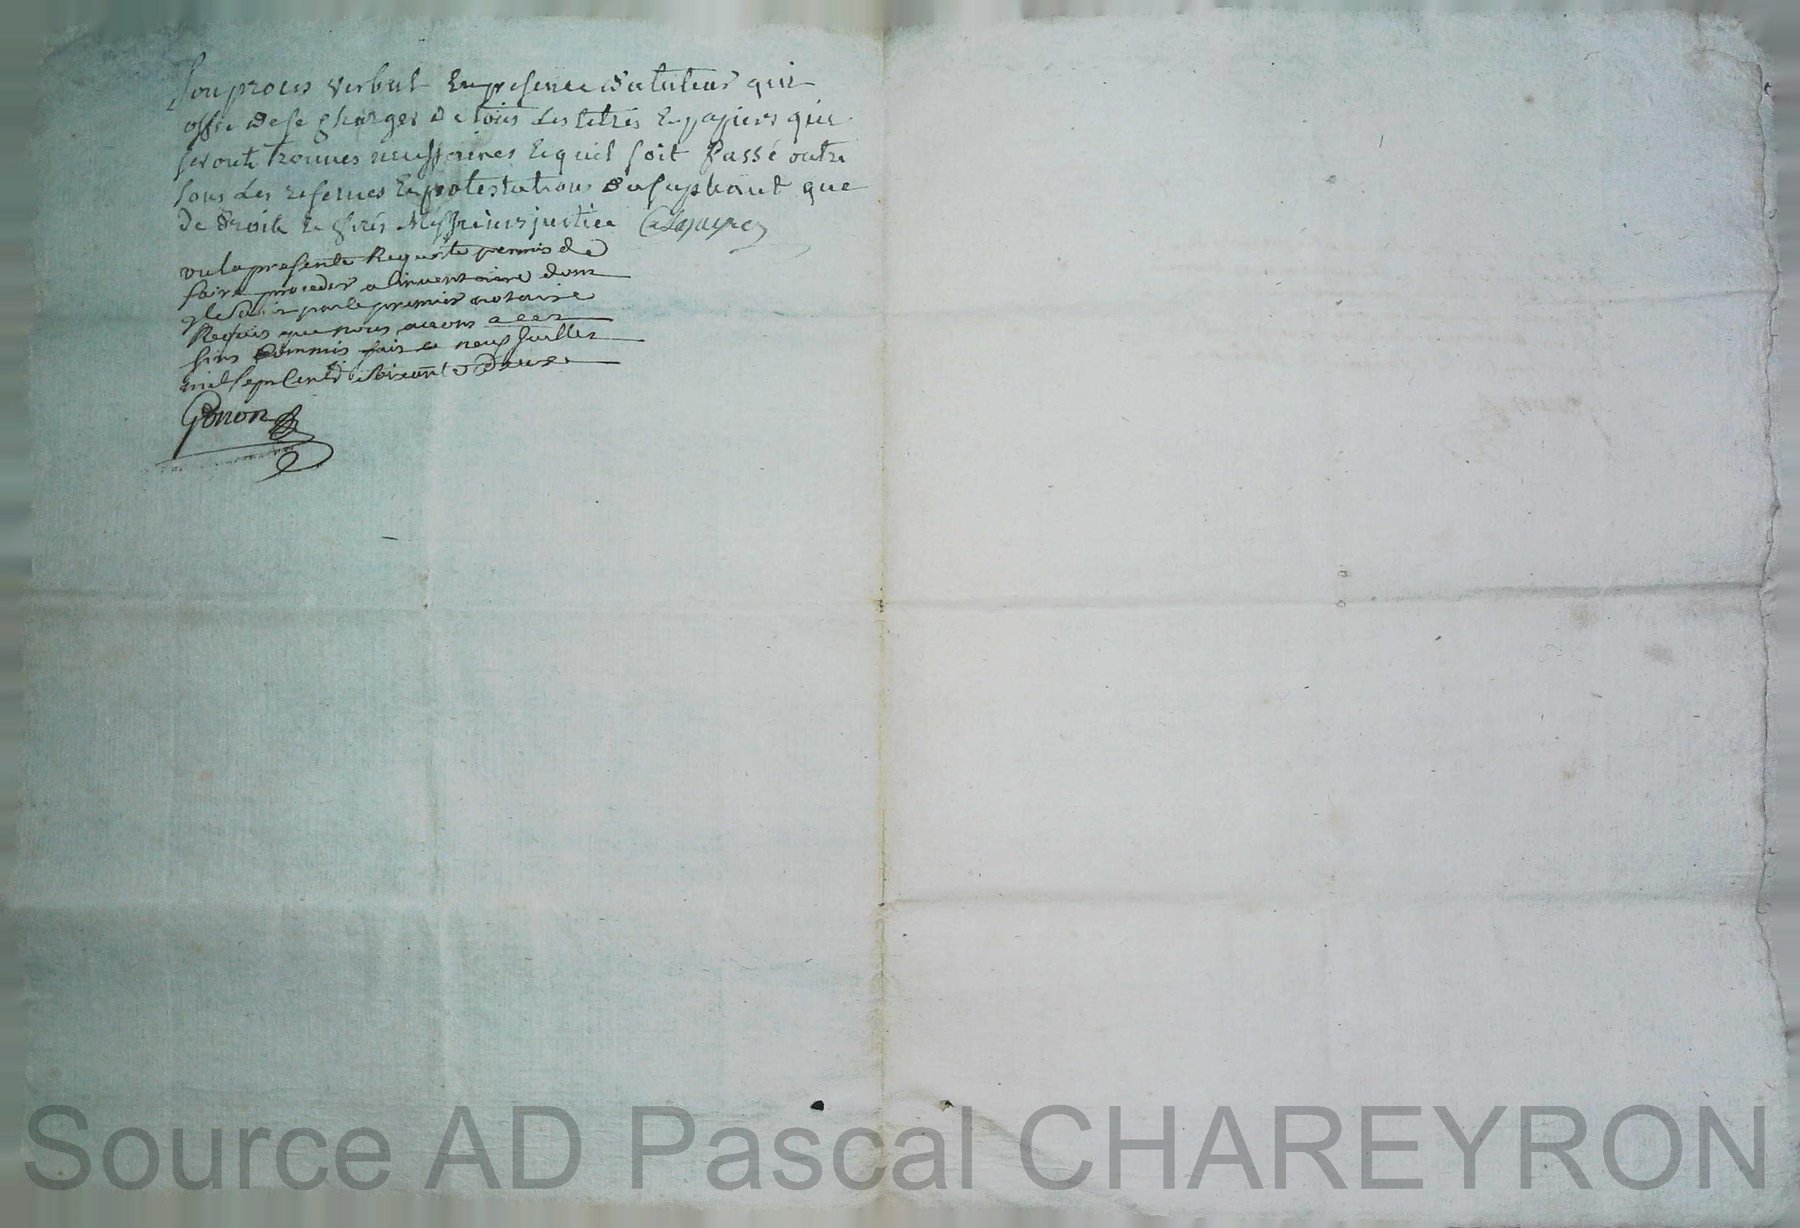 Son proces verbal En presence du tuteur qui
offre de se Charger de tous les titres Et papiers qui
seront trouves necessaires Et quil soit passé outre
sous les reserves Et protestations du supliant que
de droit Et ferés Messieurs justice
vu la presente Requette permis de
faire proceder a linventaire dont
il sagit par le premier notaire
Requis que nous avons a ces
fins Commis fait ce neuf Juillet
mil sept Cent soixante Deux
Gonon
Source AD Pascal CHAREYRON